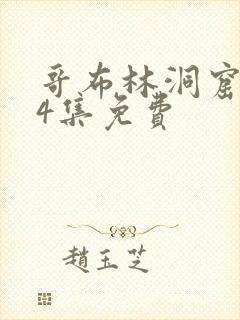 哥布林洞窟
4集免费
趙玉芝